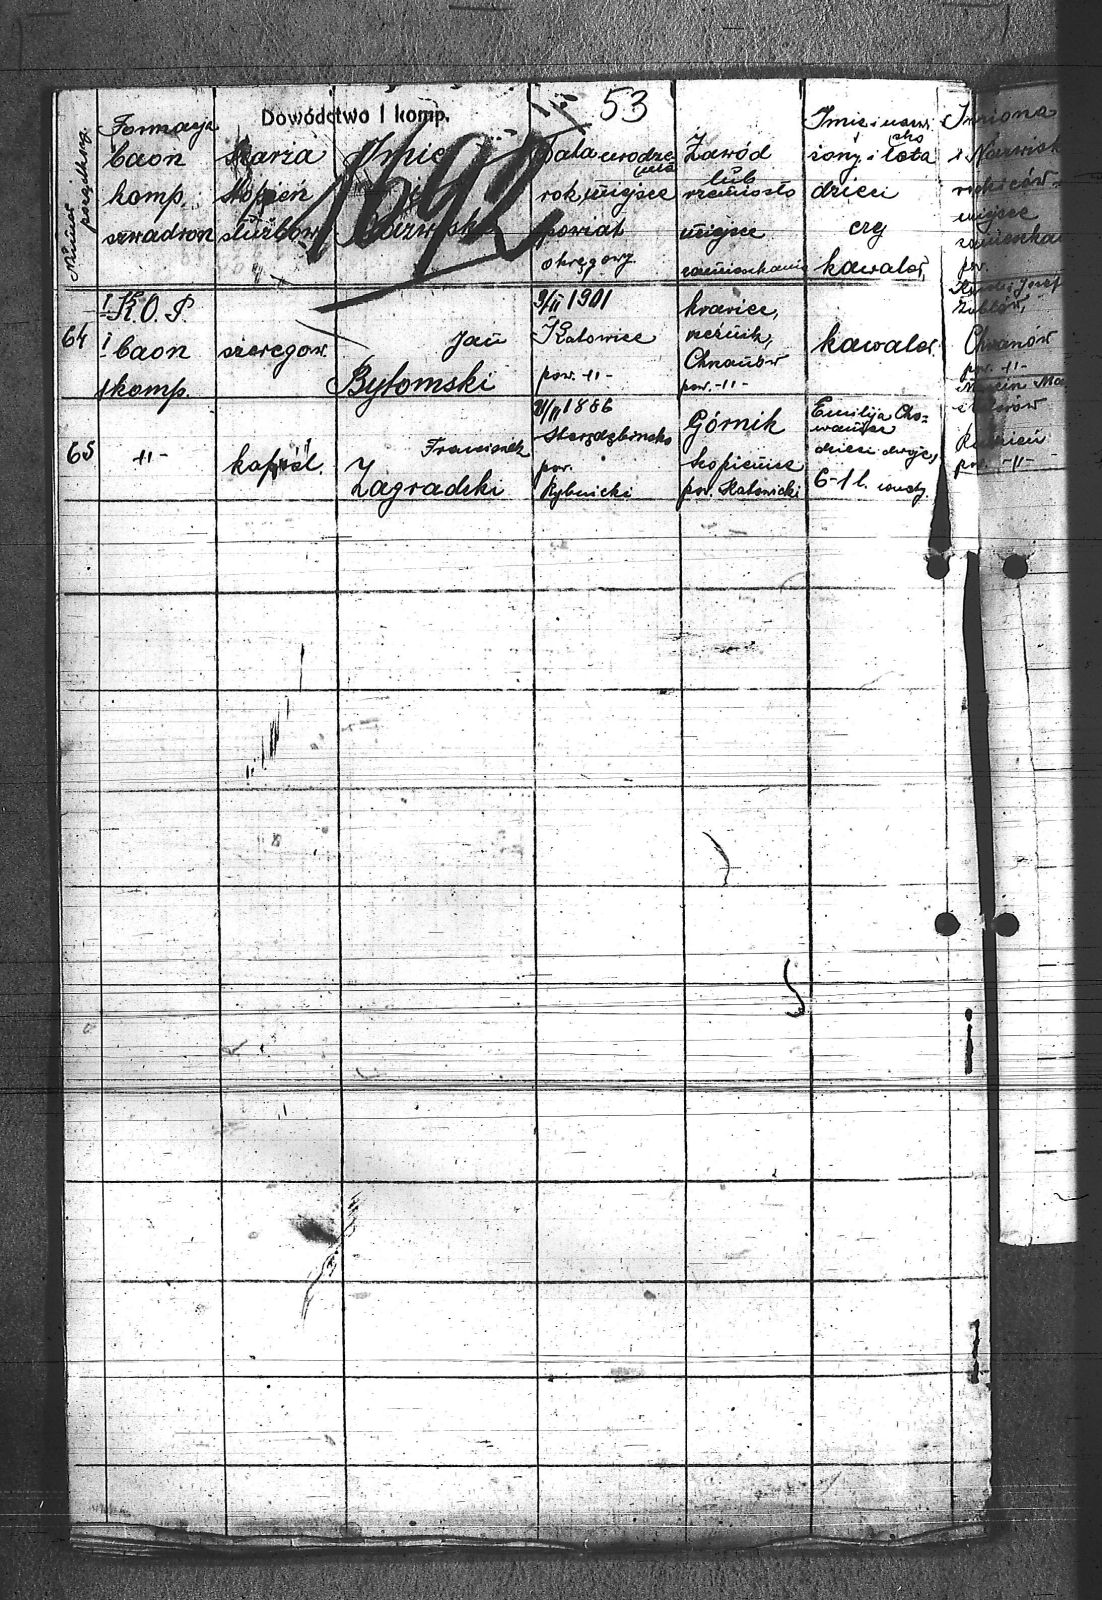 53
Dowództwo I komp.
1692
Numer porządkowy
Formacja
baon
komp.
szwadron
Szarża
stopień
służbow.
Imię
i
Nazwisko
Data urodzenia
rok miejsce
powiat
okręgowy
Zawód
lub
rzemiosło
miejsce
zamieszkania
Imię i nazwisko
żony i lata
dzieci
czy
kawaler
Imiona
i Nazwisk
rodziców
miejsce
zamieszka
pow.
64
I K.O.P.
I baon
1 komp.
szeregow.
Jan
Bytomski
9/II 1901
Katowice
pow. -11-
krawiec,
Chrzanów
pow. -11-
kawaler.
Józef
Chrzanów
pow. -11-
65
-11-
kapral
Franciszek
Zagradzki
1886
pow.
Rybnicki
Górnik
Szopienice
pow. Katowicki
Emilija
dzieci dwoje,
6-1 l.
Marcin
pow. -11-